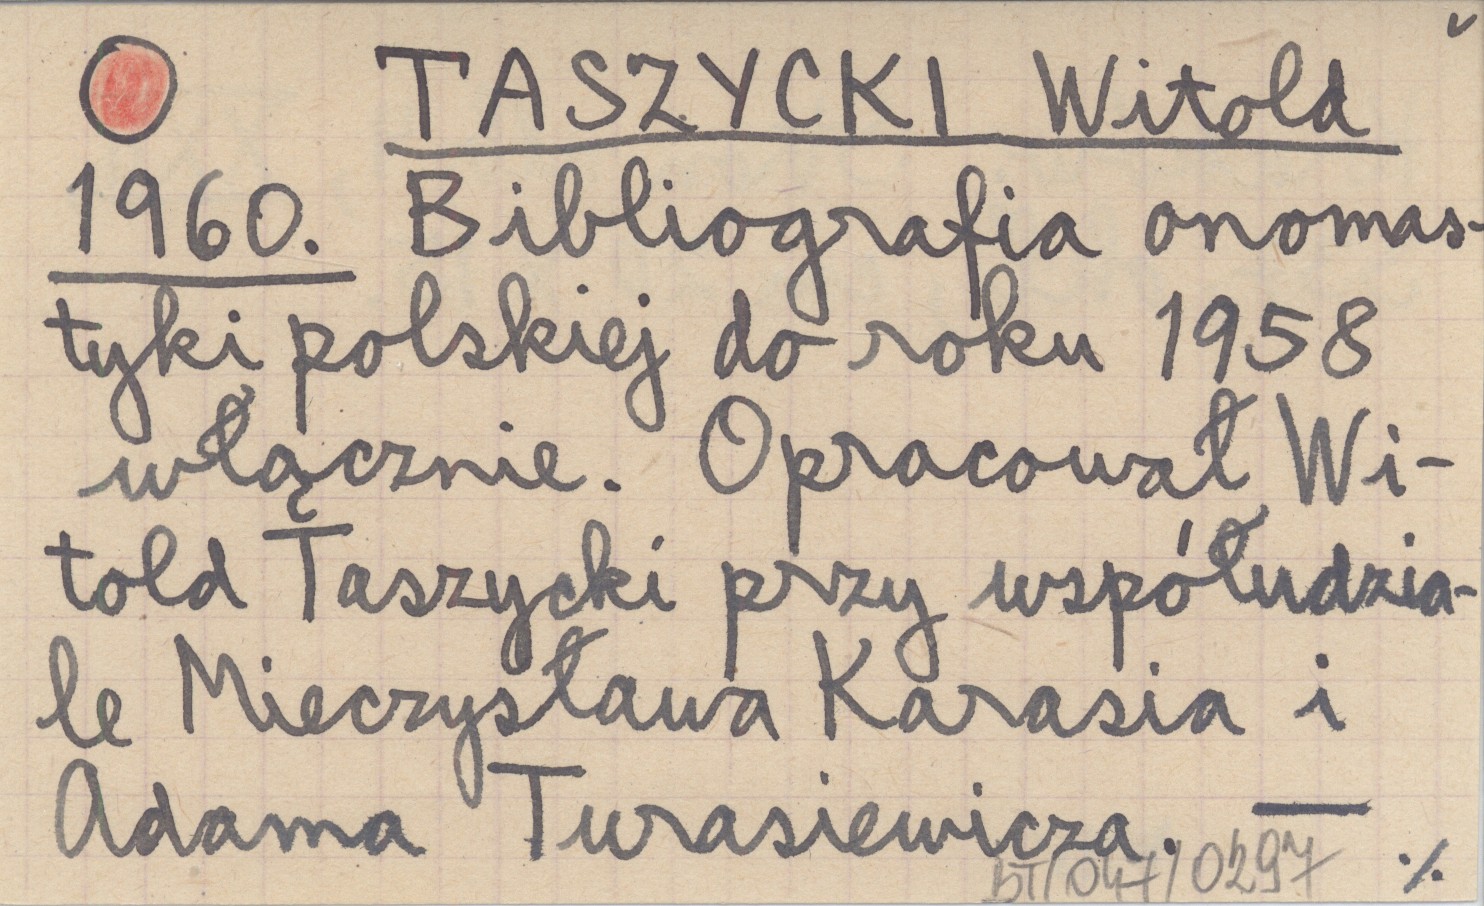 TASZYCKI Witold
1960. Bibliografia onomas-
tyki polskiej do roku 1958
włącznie. Opracował Wi-
told Taszycki przy współudzia-
le Mieczysława Karasia i
Adama Turasiewicza. —
BT/047/0297 ./.